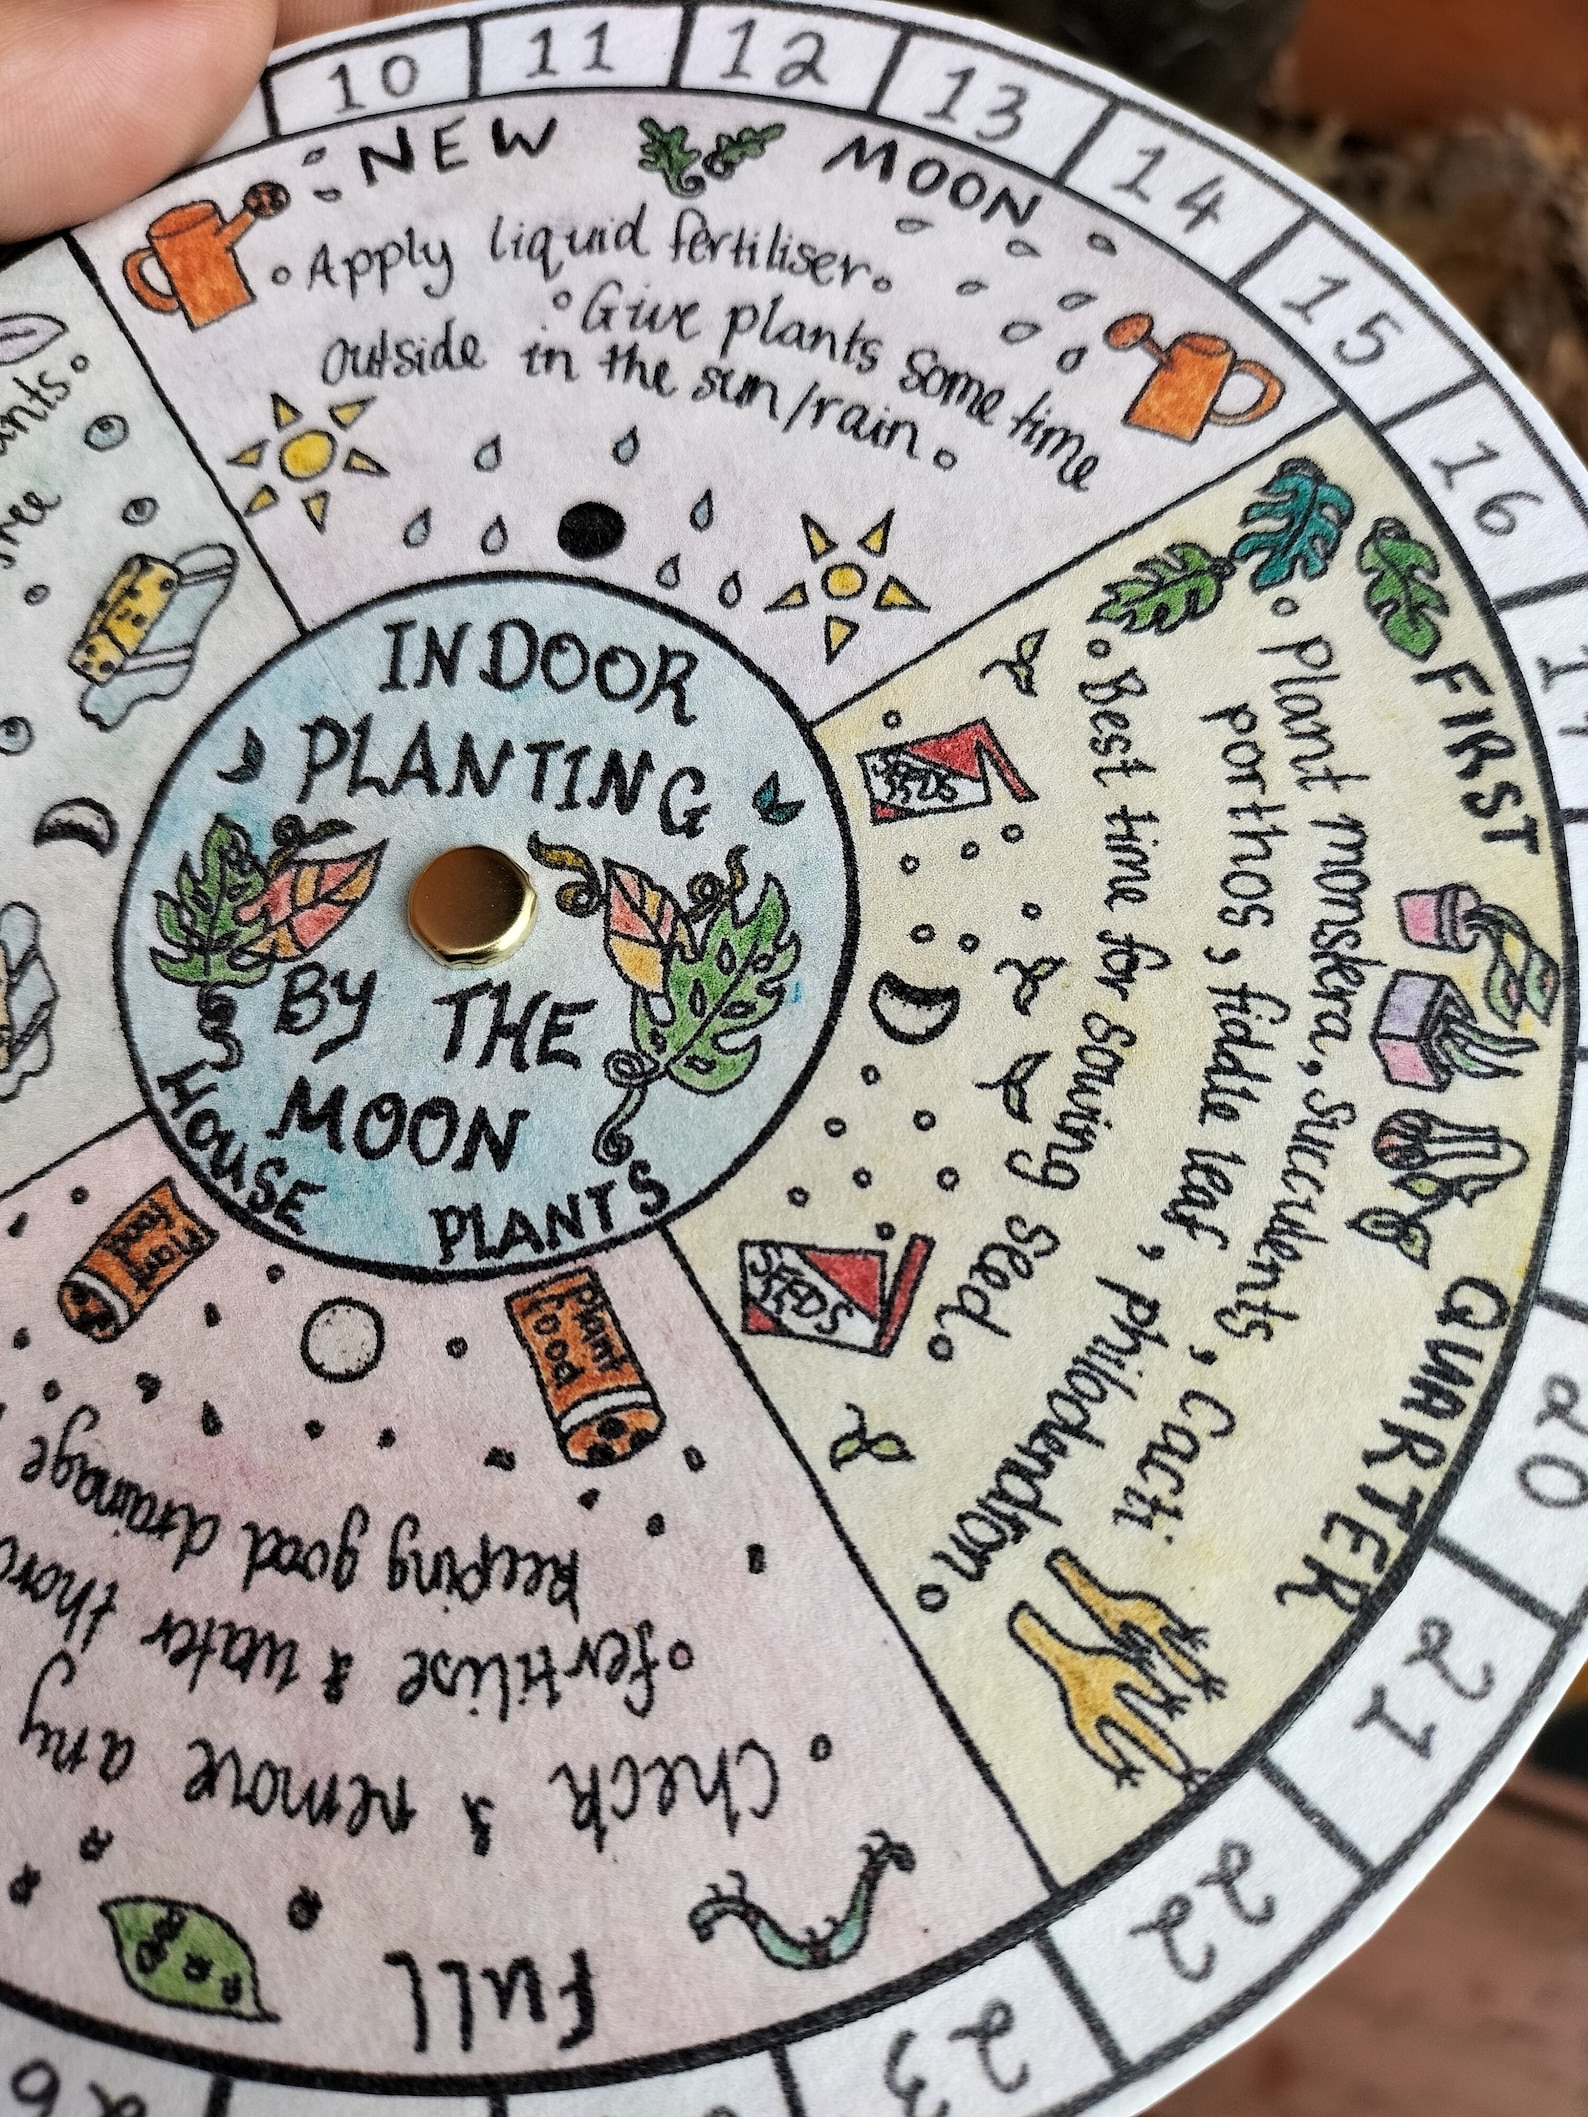 10
11
12
13
14
15
16
20
21
22
23
26
NEW MOON
Apply liquid fertiliser.
Give plants some time
outside in the sun/rain.
FIRST QUARTER
Plant monstera, succulents, cacti
porthos, fiddle leaf, philodendron.
Best time for sowing seed.
SEEDS
SEEDS
FULL
Check & remove any
fertilise & water
keeping good drainage
Plant
food
Plant
food
INDOOR
PLANTING
BY THE
MOON
HOUSE PLANTS